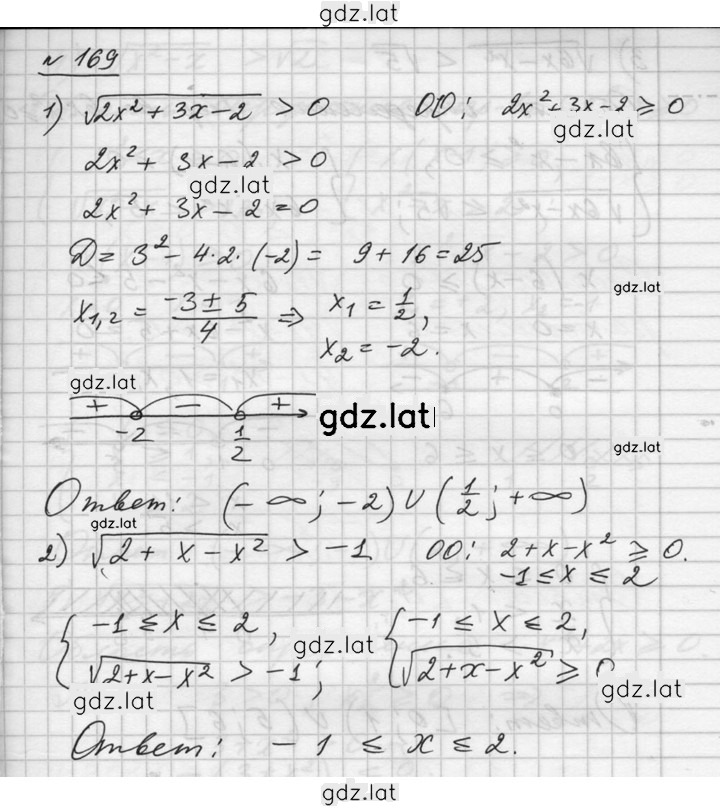 gdz.lat
№ 169
1) √(2x² + 3x - 2) > 0 ОО: 2x² + 3x - 2 ≥ 0
gdz.lat
2x² + 3x - 2 > 0
gdz.lat
2x² + 3x - 2 = 0
D = 3² - 4·2·(-2) = 9 + 16 = 25
gdz.lat
x₁,₂ = (-3 ± 5)/4 ⇒ x₁ = 1/2,
x₂ = -2.
gdz.lat
+ - +
gdz.lat
-2 1/2
gdz.lat
Ответ: (-∞; -2) ∪ (1/2; +∞)
gdz.lat
2) √(2 + x - x²) > -1 ОО: 2 + x - x² ≥ 0.
-1 ≤ x ≤ 2
{ -1 ≤ x ≤ 2, { -1 ≤ x ≤ 2,
gdz.lat
√(2 + x - x²) > -1; √(2 + x - x²) ≥ 0
gdz.lat gdz.lat
Ответ: -1 ≤ x ≤ 2.
gdz.lat